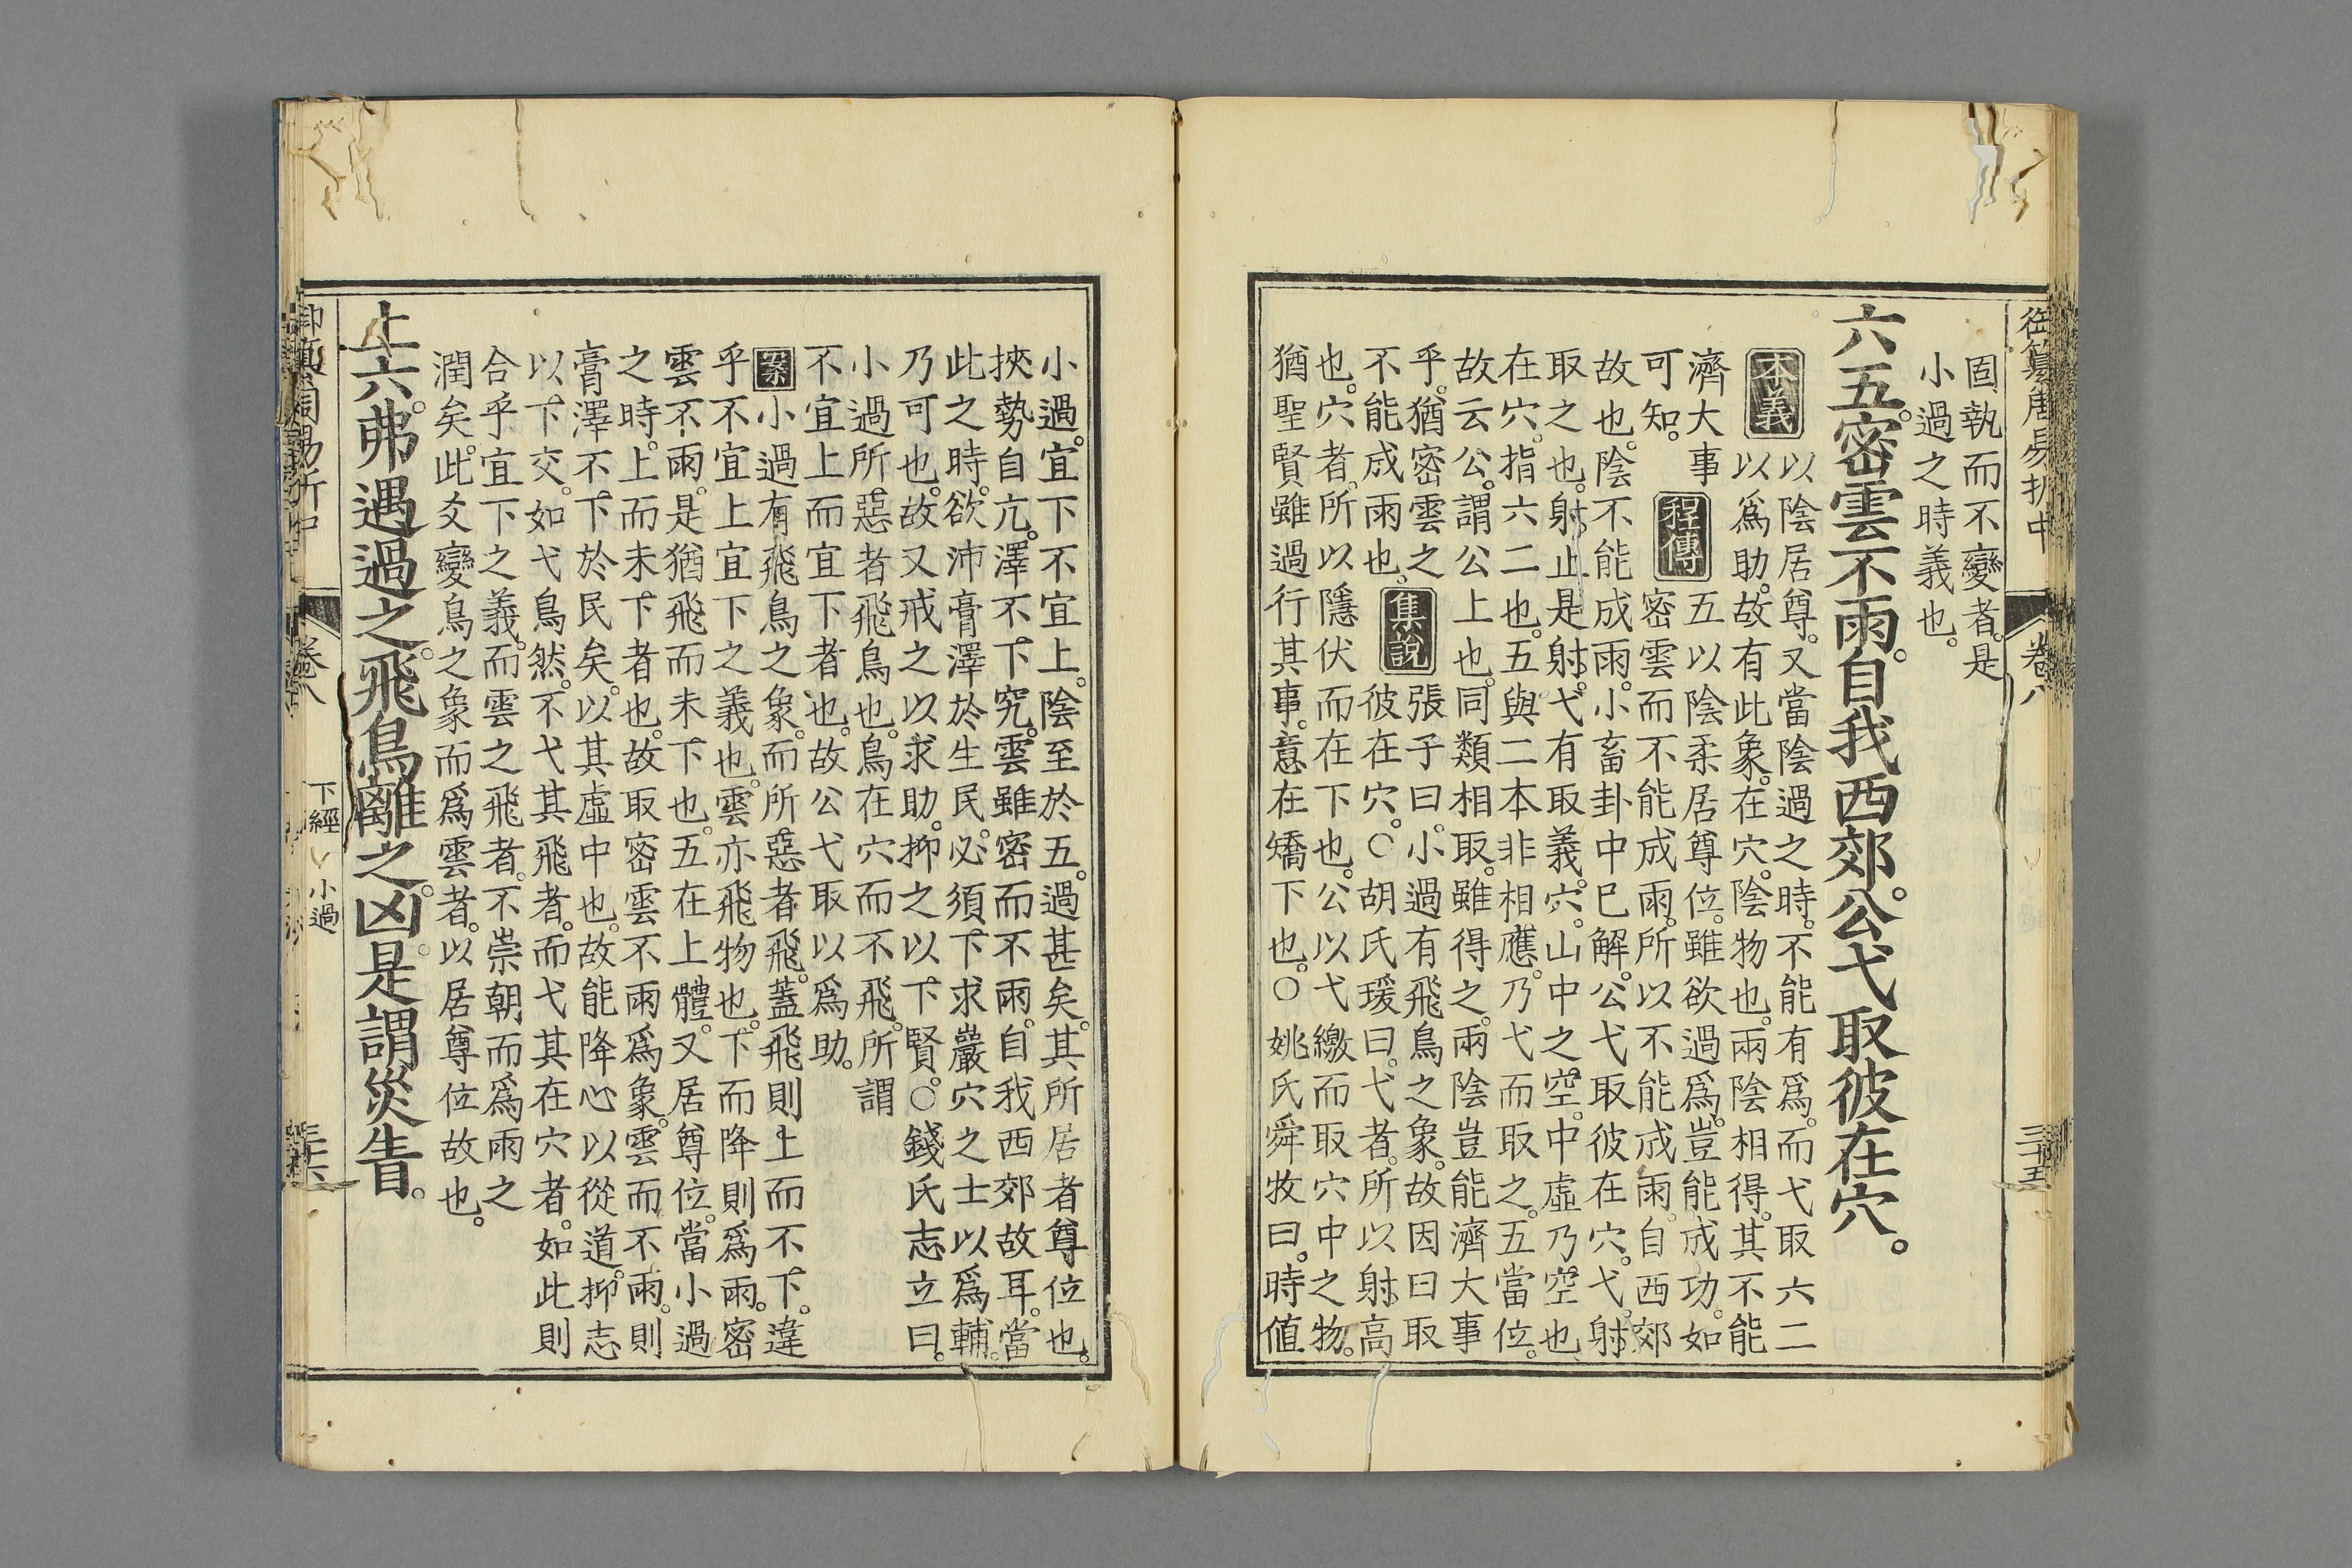 御纂周易折中 卷八 三十五
固執而不變者。是
小過之時義也。
六五。密雲不雨。自我西郊。公弋取彼在穴。
本義 以陰居尊。又當陰過之時。不能有爲。而弋取六二
以爲助。故有此象。在穴。陰物也。兩陰相得。其不能
濟大事
可知。
程傳 五以陰柔居尊位。雖欲過爲。豈能成功。如
密雲而不能成雨。所以不能成雨。自西郊
故也。陰不能成雨。小畜卦中已解。公弋取彼在穴。弋。射
取之也。射止是射。弋有取義。穴。山中之空。中虛乃空也
在穴。指六二也。五與二本非相應。乃弋而取之。五當位。
故云公。謂公上也。同類相取。雖得之。兩陰豈能濟大事
乎。猶密雲之
不能成雨也。
集說 張子曰。小過有飛鳥之象。故因曰取
彼在穴。○胡氏瑗曰。弋者。所以射高
也。穴者。所以隱伏而在下也。公以弋繳而取穴中之物。
猶聖賢雖過行其事。意在矯下也。○姚氏舜牧曰。時値
小過。宜下不宜上。陰至於五。過甚矣。其所居者尊位也。
挾勢自亢。澤不下究。雲雖密而不雨。自我西郊故耳。當
此之時。欲沛膏澤於生民。必須下求巖穴之士以爲輔。
乃可也。故又戒之以求助。抑之以下賢。○錢氏志立曰。
小過所惡者飛鳥也。鳥在穴而不飛。所謂
不宜上而宜下者也。故公弋取以爲助。
案 小過有飛鳥之象。而所惡者飛。蓋飛則上而不下。違
乎不宜上宜下之義也。雲亦飛物也。下而降則爲雨。密
雲不雨。是猶飛而未下也。五在上體。又居尊位。當小過
之時。上而未下者也。故取密雲不雨爲象。雲而不雨。則
膏澤不下於民矣。以其虛中也。故能降心以從道。抑志
以下交。如弋鳥然。不弋其飛者。而弋其在穴者。如此則
合乎宜下之義。而雲之飛者。不崇朝而爲雨之
潤矣。此爻變鳥之象而爲雲者。以居尊位故也。
上六。弗遇過之。飛鳥離之。凶。是謂災眚。
御纂周易折中 卷八 下經 小過 三十六